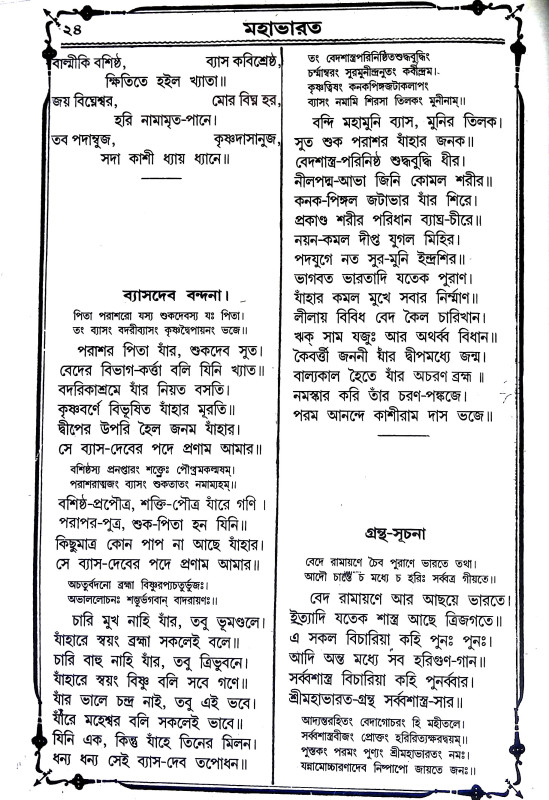 ২৪
মহাভারত
বাল্মীকি বশিষ্ঠ, ব্যাস কবিশ্রেষ্ঠ,
ক্ষিতিতে হইল খ্যাতা॥
জয় বিঘ্নেশ্বর, মোর বিঘ্ন হর,
হরি নামামৃত-পানে।
তব পদাম্বুজ, কৃষ্ণদাসানুজ,
সদা কাশী ধ্যায় ধ্যানে॥
ব্যাসদেব বন্দনা।
পিতা পরাশরো যস্য শুকদেবস্য যঃ পিতা।
তং ব্যাসং বদরীব্যাসং কৃষ্ণদ্বৈপায়নং ভজে॥
পরাশর পিতা যাঁর, শুকদেব সুত।
বেদের বিভাগ-কর্ত্তা বলি যিনি খ্যাত॥
বদরিকাশ্রমে যাঁর নিয়ত বসতি।
কৃষ্ণবর্ণে বিভূষিত যাঁহার মূরতি॥
দ্বীপের উপরি হৈল জনম যাঁহার।
সে ব্যাস-দেবের পদে প্রণাম আমার॥
বশিষ্ঠস্য প্রনপ্তারং শক্তেঃ পৌত্রমকল্মষম্।
পরাশরাত্মজং ব্যাসং শুকতাতং নমাম্যহম্॥
বশিষ্ঠ-প্রপৌত্র, শক্তি-পৌত্র যাঁরে গণি।
পরাপর-পুত্র, শুক-পিতা হন যিনি॥
কিছুমাত্র কোন পাপ না আছে যাঁহার।
সে ব্যাস-দেবের পদে প্রণাম আমার॥
অচতুর্বদনো ব্রহ্মা বিষ্ণুরপ্যচতুর্ভুজঃ।
অভাললোচনঃ শম্ভুর্ভগবান্ বাদরায়ণঃ॥
চারি মুখ নাহি যাঁর, তবু ভূমণ্ডলে।
যাঁহারে স্বয়ং ব্রহ্মা সকলেই বলে॥
চারি বাহু নাহি যাঁর, তবু ত্রিভুবনে।
যাঁহারে স্বয়ং বিষ্ণু বলি সবে গণে॥
যাঁর ভালে চন্দ্র নাই, তবু এই ভবে।
যাঁরে মহেশ্বর বলি সকলেই ভাবে॥
যিনি এক, কিন্তু যাঁহে তিনের মিলন।
ধন্য ধন্য সেই ব্যাস-দেব তপোধন॥
তং বেদশাস্ত্রপরিনিষ্ঠিতশুদ্ধবুদ্ধিং
চর্ম্মাম্বরং সুরমুনীন্দ্রনুতং কবীন্দ্রম।
কৃষ্ণত্বিষং কনকপিঙ্গজটাকলাপং
ব্যাসং নমামি শিরসা তিলকং মুনীনাম্॥
বন্দি মহামুনি ব্যাস, মুনির তিলক।
সুত শুক পরাশর যাঁহার জনক॥
বেদশাস্ত্র-পরিনিষ্ঠ শুদ্ধবুদ্ধি ধীর।
নীলপদ্ম-আভা জিনি কোমল শরীর॥
কনক-পিঙ্গল জটাভার যাঁর শিরে।
প্রকাণ্ড শরীর পরিধান ব্যাঘ্র-চীরে॥
নয়ন-কমল দীপ্ত যুগল মিহির।
পদযুগে নত সুর-মুনি ইন্দ্রশির॥
ভাগবত ভারতাদি যতেক পুরাণ।
যাঁহার কমল মুখে সবার নির্ম্মাণ॥
লীলায় বিবিধ বেদ কৈল চারিখান।
ঋক্ সাম যজুঃ আর অথর্ব্ব বিধান॥
কৈবর্ত্তী জননী যাঁর দ্বীপমধ্যে জন্ম।
বাল্যকাল হৈতে যাঁর অচরণ ব্রহ্ম ॥
নমস্কার করি তাঁর চরণ-পঙ্কজে।
পরম আনন্দে কাশীরাম দাস ভজে॥
গ্রন্থ-সূচনা
বেদে রামায়ণে চৈব পুরাণে ভারতে তথা।
আদৌ চান্তে চ মধ্যে চ হরিঃ সর্ব্বত্র গীয়তে॥
বেদ রামায়ণে আর আছয়ে ভারতে।
ইত্যাদি যতেক শাস্ত্র আছে ত্রিজগতে॥
এ সকল বিচারিয়া কহি পুনঃ পুনঃ।
আদি অন্ত মধ্যে সব হরিগুণ-গান॥
সর্ব্বশাস্ত্র বিচারিয়া কহি পুনর্ব্বার।
শ্রীমহাভারত-গ্রন্থ সর্ব্বশাস্ত্র-সার॥
আদ্যন্তরহিতং বেদাগোচরং হি মহীতলে।
সর্ব্বশাস্ত্রবীজং প্রোক্তং হরিরিত্যক্ষরদ্বয়ম্॥
পুস্তকং পরমং পুণ্যং শ্রীমহাভারতং নমঃ।
যন্নামোচ্চারণাদেব নিষ্পাপো জায়তে জনঃ॥